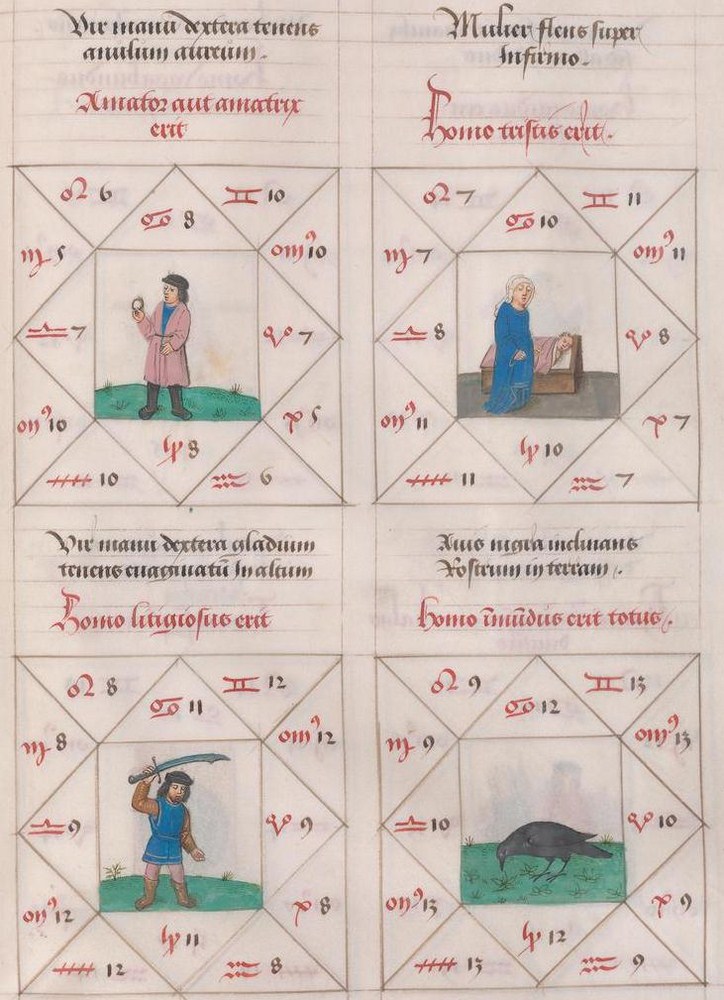 Vir manu dextera tenens
anulum aureum .
Amator aut amatrix
erit
♌ 6 ♊ 10
♋ 8
♍ 5 ♉ 10
♎ 7 ♈ 7
♏ 10 ♓ 5
♑ 8
♐ 10 ♒ 6
Mulier flens super
Infirmo .
Homo tristis erit .
♌ 7 ♊ 11
♋ 10
♍ 7 ♉ 11
♎ 8 ♈ 8
♏ 11 ♓ 7
♑ 10
♐ 11 ♒ 7
Vir manu dextera gladium
tenens euaginatū In altum
Homo litigiosus erit
♌ 8 ♊ 12
♋ 11
♍ 8 ♉ 12
♎ 9 ♈ 9
♏ 12 ♓ 8
♑ 11
♐ 12 ♒ 8
Auis nigra inclinans
Rostrum in terram .
Homo īmūdus erit totus .
♌ 9 ♊ 13
♋ 12
♍ 9 ♉ 13
♎ 10 ♈ 10
♏ 13 ♓ 9
♑ 12
♐ 13 ♒ 9